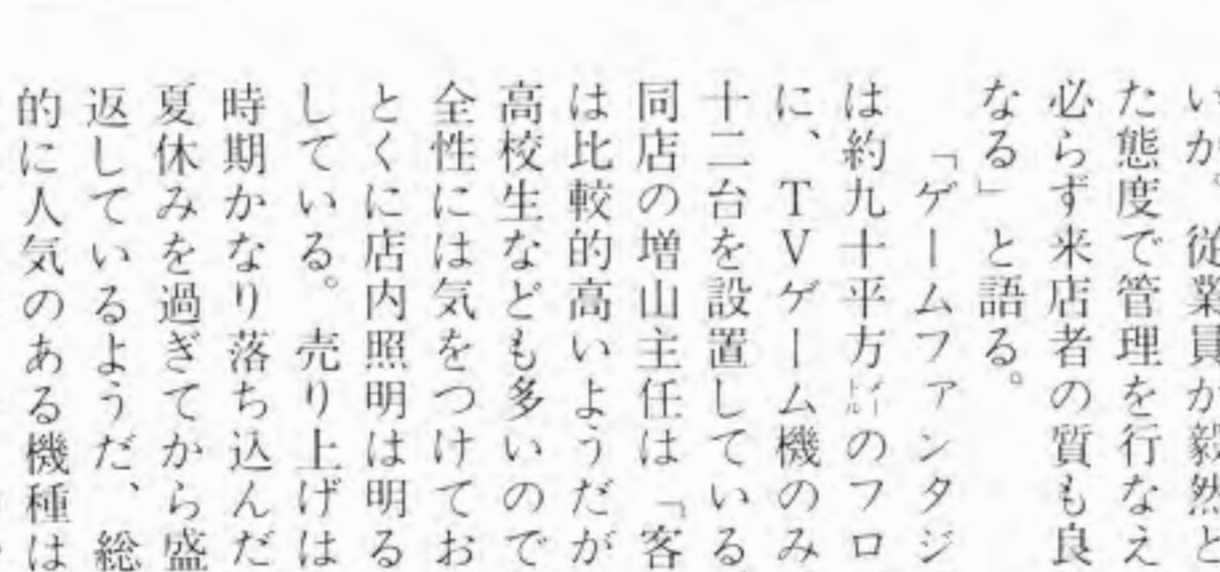 いが、従業員が毅然と
た態度で管理を行なえ
必らず来店者の質も良
なる」と語る。
「ゲームファンタジ
は約九十平方㍍のフロ
に、ＴＶゲーム機のみ
十二台を設置している
同店の増山主任は「客
は比較的高いようだが
高校生なども多いので
全性には気をつけてお
とくに店内照明は明る
している。売り上げは
時期かなり落ち込んだ
夏休みを過ぎてから盛
返しているようだ、総
的に人気のある機種は